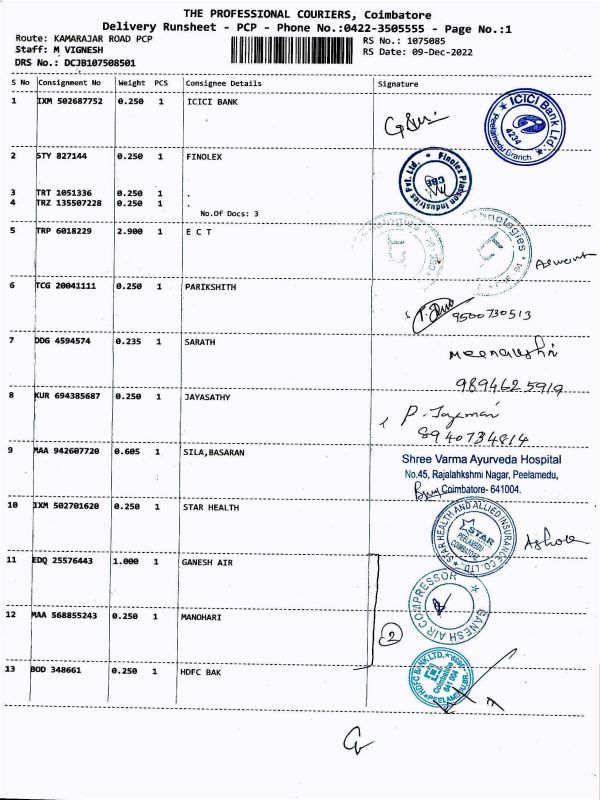 THE PROFESSIONAL COURIERS, Coimbatore
Delivery Runsheet - PCP - Phone No.:0422-3505555 - Page No.:1
Route: KAMARAJAR ROAD PCP
RS No.: 1075085
Staff: M VIGNESH
RS Date: 09-Dec-2022
DRS No.: DCJB107508501
S No Consignment No Weight PCS Consignee Details Signature
1 IXM 502687752 0.250 1 ICICI BANK
ICICI Bank Ltd.
4234
Peelamedu Branch
2 STY 827144 0.250 1 FINOLEX
Finolex Plasson Industries Pvt. Ltd.
CBE
3 TRT 1051336 0.250 1 .
4 TRZ 135507228 0.250 1 .
No.Of Docs: 3
5 TRP 6018229 2.900 1 E C T
Technologies
6 TCG 20041111 0.250 1 PARIKSHITH
9500730513
7 DDG 4594574 0.235 1 SARATH
Meenakshi
9894625919
8 KUR 694385687 0.250 1 JAYASATHY
P. Jayamani
8940734814
9 MAA 942607720 0.605 1 SILA,BASARAN
Shree Varma Ayurveda Hospital
No.45, Rajalahkshmi Nagar, Peelamedu,
Coimbatore- 641004.
10 IXM 502701620 0.250 1 STAR HEALTH
STAR HEALTH AND ALLIED INSURANCE CO. LTD.
STAR
PEELAMEDU
COIMBATORE
Ashok
11 EDQ 25576443 1.000 1 GANESH AIR
GANESH AIR COMPRESSOR
12 MAA 568855243 0.250 1 MANOHARI
2
13 BOD 348661 0.250 1 HDFC BAK
HDFC BANK LTD.
Coimbatore
641 004
PEELAMEDU BR.